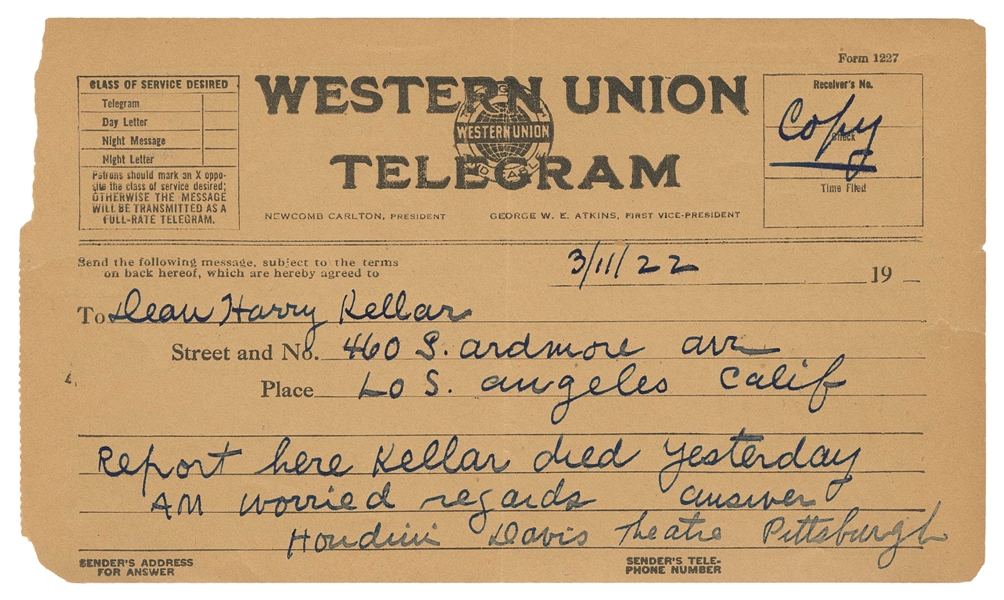 Form 1227
CLASS OF SERVICE DESIRED
Telegram
Day Letter
Night Message
Night Letter
Patrons should mark an X oppo-
site the class of service desired;
OTHERWISE THE MESSAGE
WILL BE TRANSMITTED AS A
FULL-RATE TELEGRAM.
WESTERN UNION
WESTERN UNION
TELEGRAM
NEWCOMB CARLTON, PRESIDENT
GEORGE W. E. ATKINS, FIRST VICE-PRESIDENT
Receiver's No.
Copy
Check
Time Filed
Send the following message, subject to the terms
on back hereof, which are hereby agreed to
3/11/22 19
To Dean Harry Kellar
Street and No. 460 S. ardmore ave
Place Lo S. angeles Calif
Report here Kellar died yesterday
AM worried regards answer
Houdini Davis Theatre Pittsburgh
SENDER'S ADDRESS
FOR ANSWER
SENDER'S TELE-
PHONE NUMBER